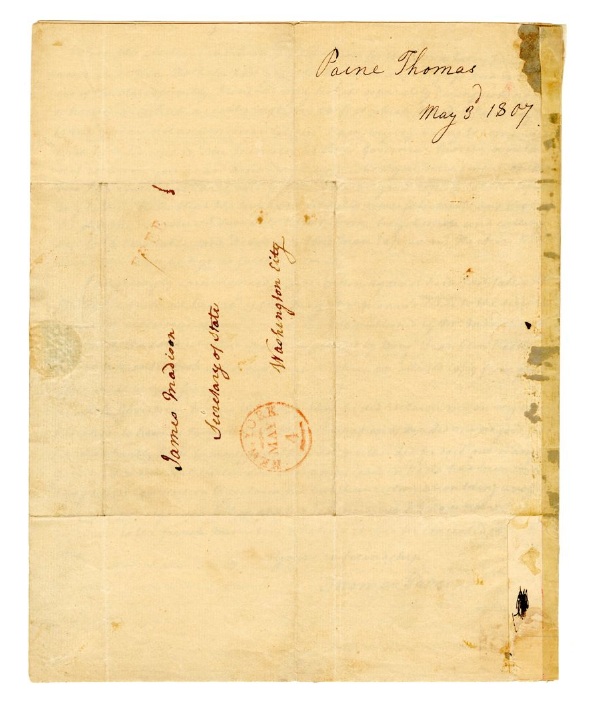 Paine Thomas
May 3d 1807
FREE
James Madison
Secretary of State
Washington City
NEW-YORK
MAY
4